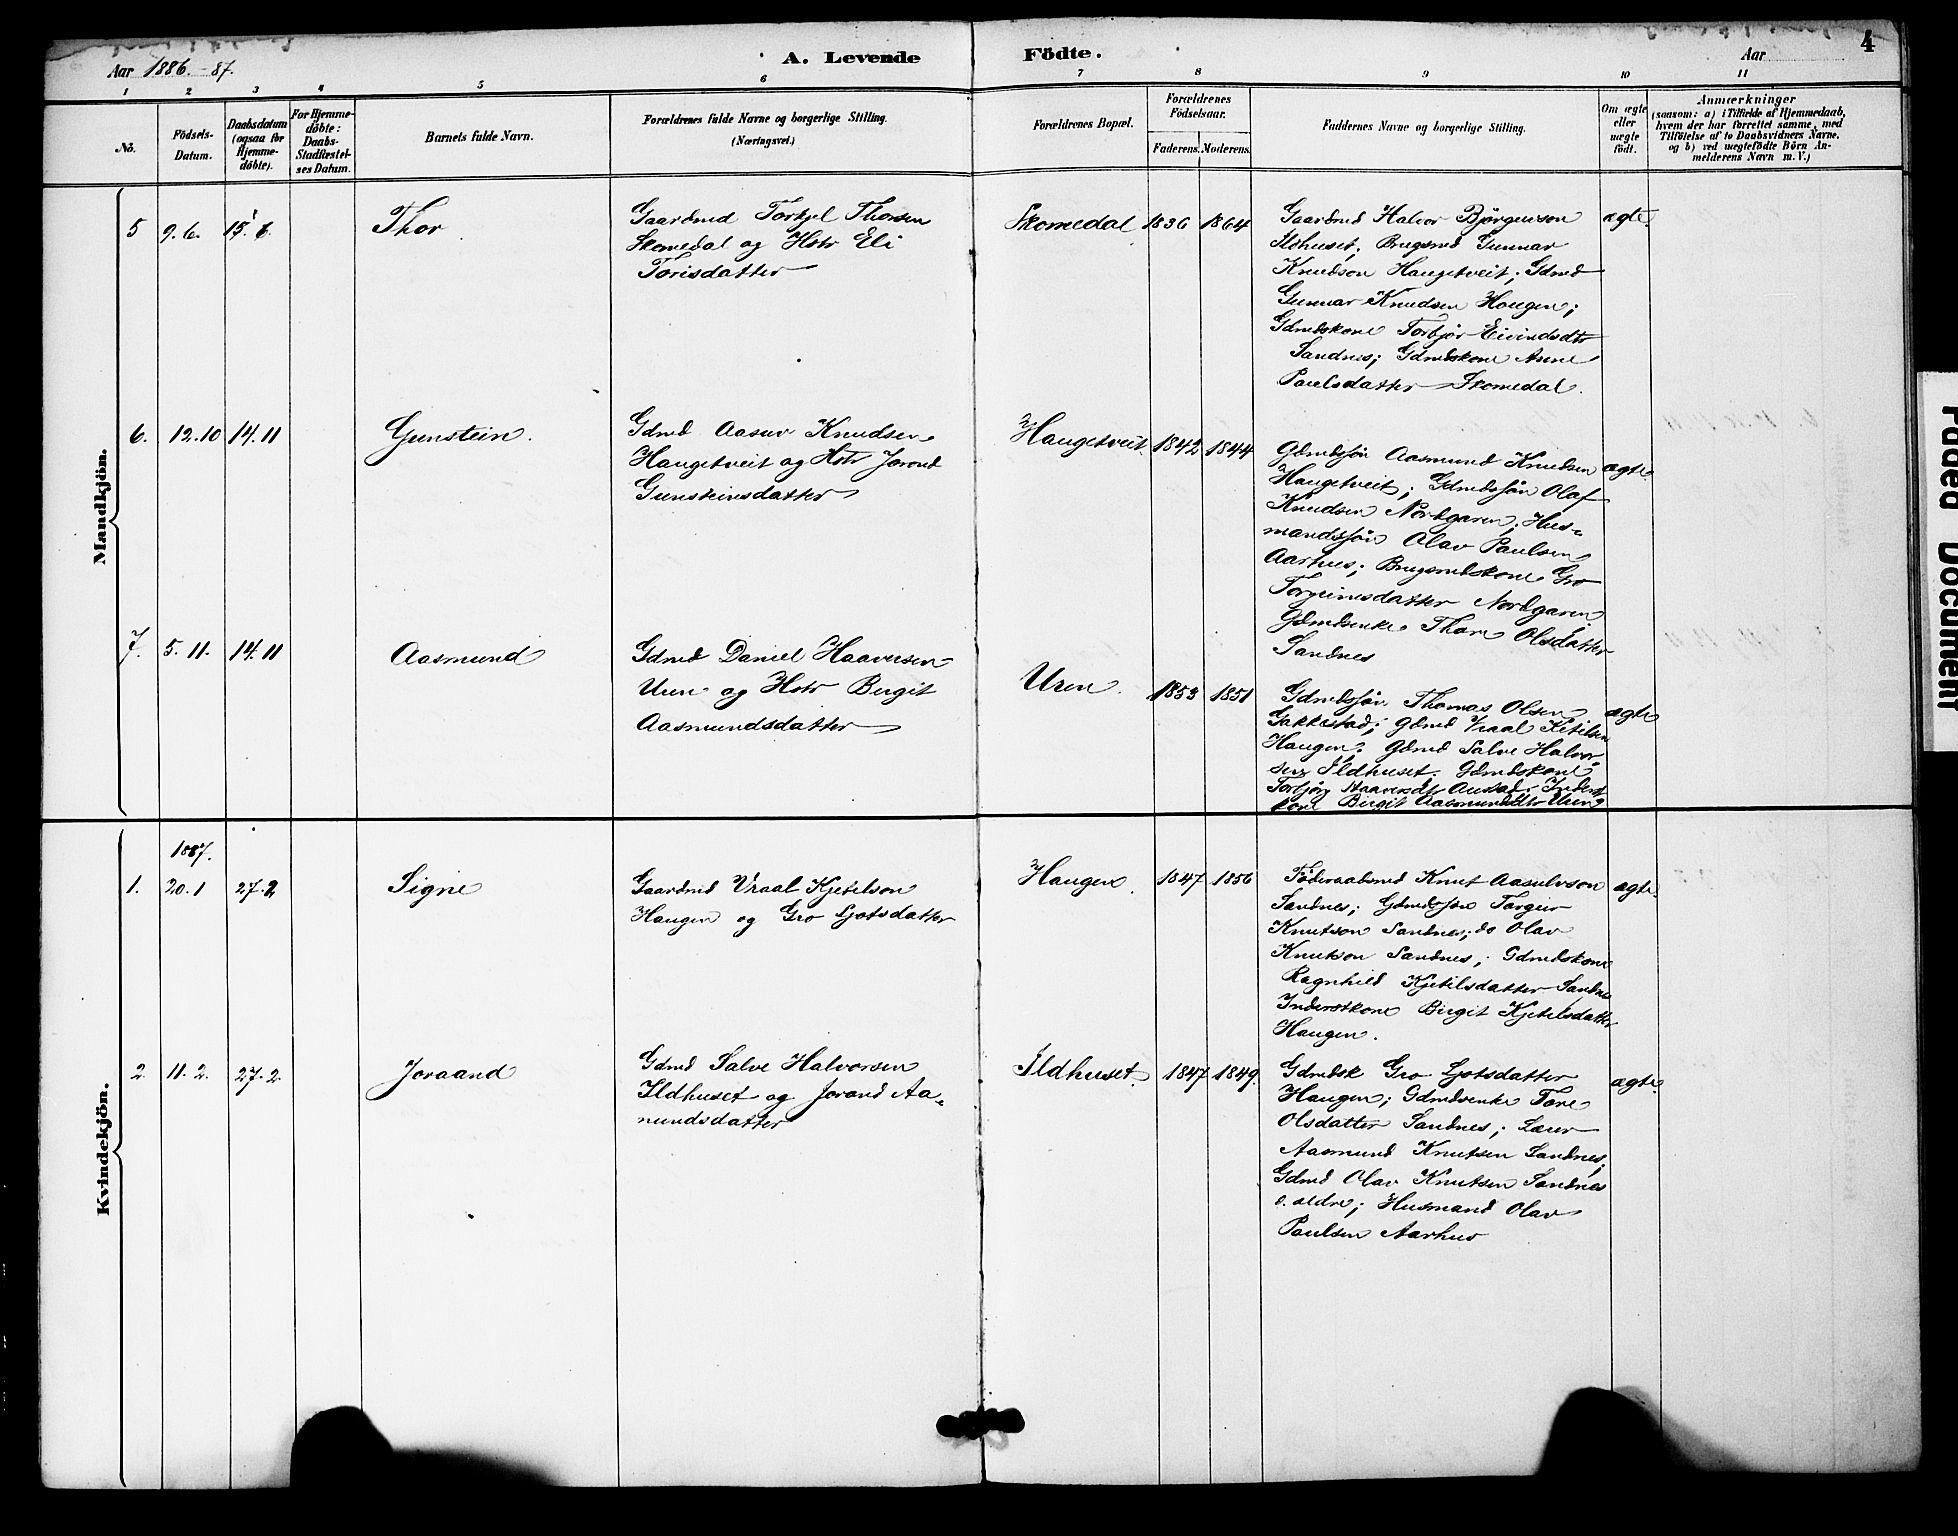 Aar 1886.-87.
A. Levende Födte.
Aar
4
1 2 3 4 5 6 7 8 9 10 11
No.
Födsels-
Datum.
Daabsdatum
(ogsaa for
Hjemme-
döbte).
For Hjemme-
döbte:
Daabs-
Stadfæstel-
ses Datum.
Barnets fulde Navn.
Forældrenes fulde Navne og borgerlige Stilling.
(Næringsvei.)
Forældrenes Bopæl.
Forældrenes
Födselsaar.
Faderens. Moderens.
Faddernes Navne og borgerlige Stilling.
Om ægte
eller
uægte
født.
Anmærkninger
(saasom: a) i Tilfælde af Hjemmedaab,
hvem der har forrettet samme, med
Tilföielse af to Daabsvidners Navne,
og b) ved uægtefödte Börn An-
melderens Navn m. V.)
Mandkjön.
5 9.6. 15.6. Thor
Gaardmd Torkjel Thorsen
Skomedal og Hstr Eli
Torisdatter
Skomedal 1836 1864
Gaardmd Halvor Björgenson
Ildhuset, Brugsmd Gunnar
Knudson Haugetveit; Gdmd
Gunnar Knudsen Haugen;
Gdmdskone Torbjör Eivindsdtr
Sandnes; Gdmdskone Anne
Paulsdatter Skomedal.
ægte.
6. 12.10 14.11 Gunstein.
Gdmd Aasuv Knudsen
Haugetveit og Hstr Jorond
Gunsteinsdatter
Haugetveit. 1842 1844
Gdmdssön Aasmund Knudsen
Haugetveit; Gdmdssön Olaf
Knudsen Nordgaren; Hus-
mandssön Olav Paulsen
Aarhus; Brugsmdskone Gro
Torgeimsdatter Nordgaren
Gdmdsenke Thore Olsdatter
Sandnes
ægte.
7. 5.11. 14.11 Aasmund
Gdmd Daniel Haaversen
Uren og Hstr Birgit
Aasmundsdatter
Uren. 1853 1851
Gdmdssön Thomas Olsen
Gakkestad; Gdmd Vraal Ketilsen
Haugen. Gdmd Salve Halvor-
sen Ildhuset. Gdmdskone
Torbjörg Haaversdtr Austad. Inderst
kone Birgit Aasmundsdtr Uren
ægte
Kvindekjön.
1887.
1. 20.1 27.2 Signe
Gaardmd Vraal Kjetilson
Haugen og Gro Ljotsdatter
Haugen. 1847 1856
Föderaadsmd Knut Aasulvson
Sandnes; Gdmdssön Torgeir
Knutson Sandnes; do Olav
Knutson Sandnes; Gdmdskone
Ragnhild Kjetilsdatter Sandnes
Inderstkone Birgit Kjetilsdatter
Haugen.
ægte.
2. 11.2. 27.2 Joraand
Gdmd Salve Halvorsen
Ildhuset og Jorand Aa-
mundsdatter
Ildhuset. 1847 1849.
Gdmdsk Gro Ljotsdatter
Haugen; Gdmdsenke Tore
Olsdatter Sandnes; Lærer
Aasmund Knutsen Sandnes;
Gdmd Olav Knutsen Sandnes
d. ældre; Husmand Olav
Paulsen Aarhus
ægte.
Faded Document